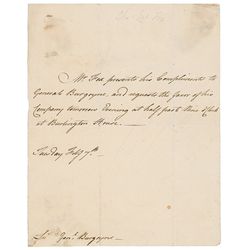 Mr Fox presents his Compliments to
General Burgoyne, and requests the favor of his
Company tomorrow Evening at half past Nine o'Clock
at Burlington House.—
Sunday Feby 7th.
Genl Burgoyne.